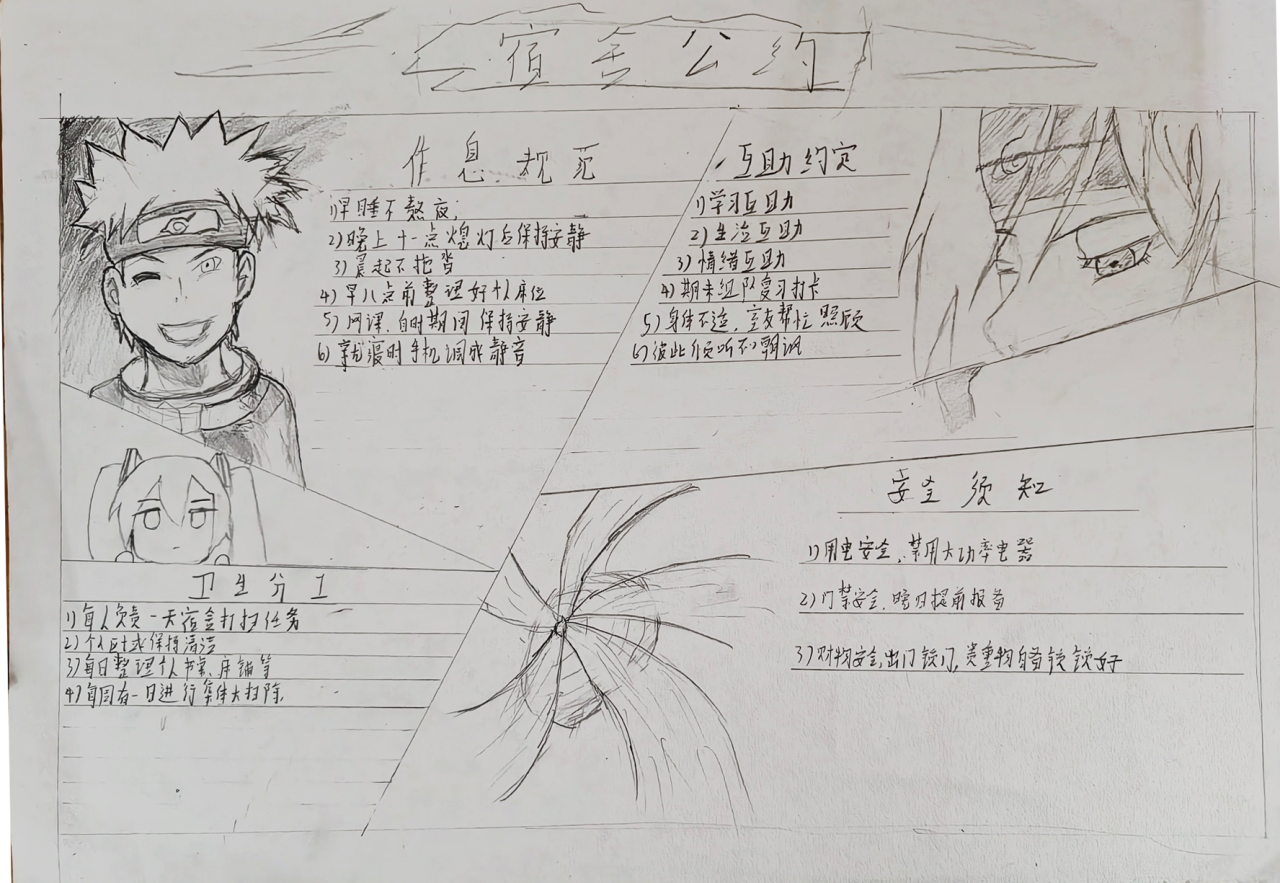 宿舍公约
作息规范
1)早睡不熬夜;
2)晚上十一点熄灯后保持安静
3)晨起不拖沓
4)早八点前整理好个人床位
5)网课,自时期间保持安静
6)就寝时手机调成静音
互助约定
1)学习互助
2)生活互助
3)情绪互助
4)期末组队复习打卡
5)身体不适,室友帮忙照顾
6)彼此倾听不嘲讽
卫生分工
1)每人负责一天宿舍打扫任务
2)个人区域保持清洁
3)每日整理个人书桌、床铺等
4)每周有一日进行集体大扫除.
安全须知
1)用电安全,禁用大功率电器
2)门禁安全,晚归提前报备
3)财物安全,出门锁门,贵重物自备锁锁好